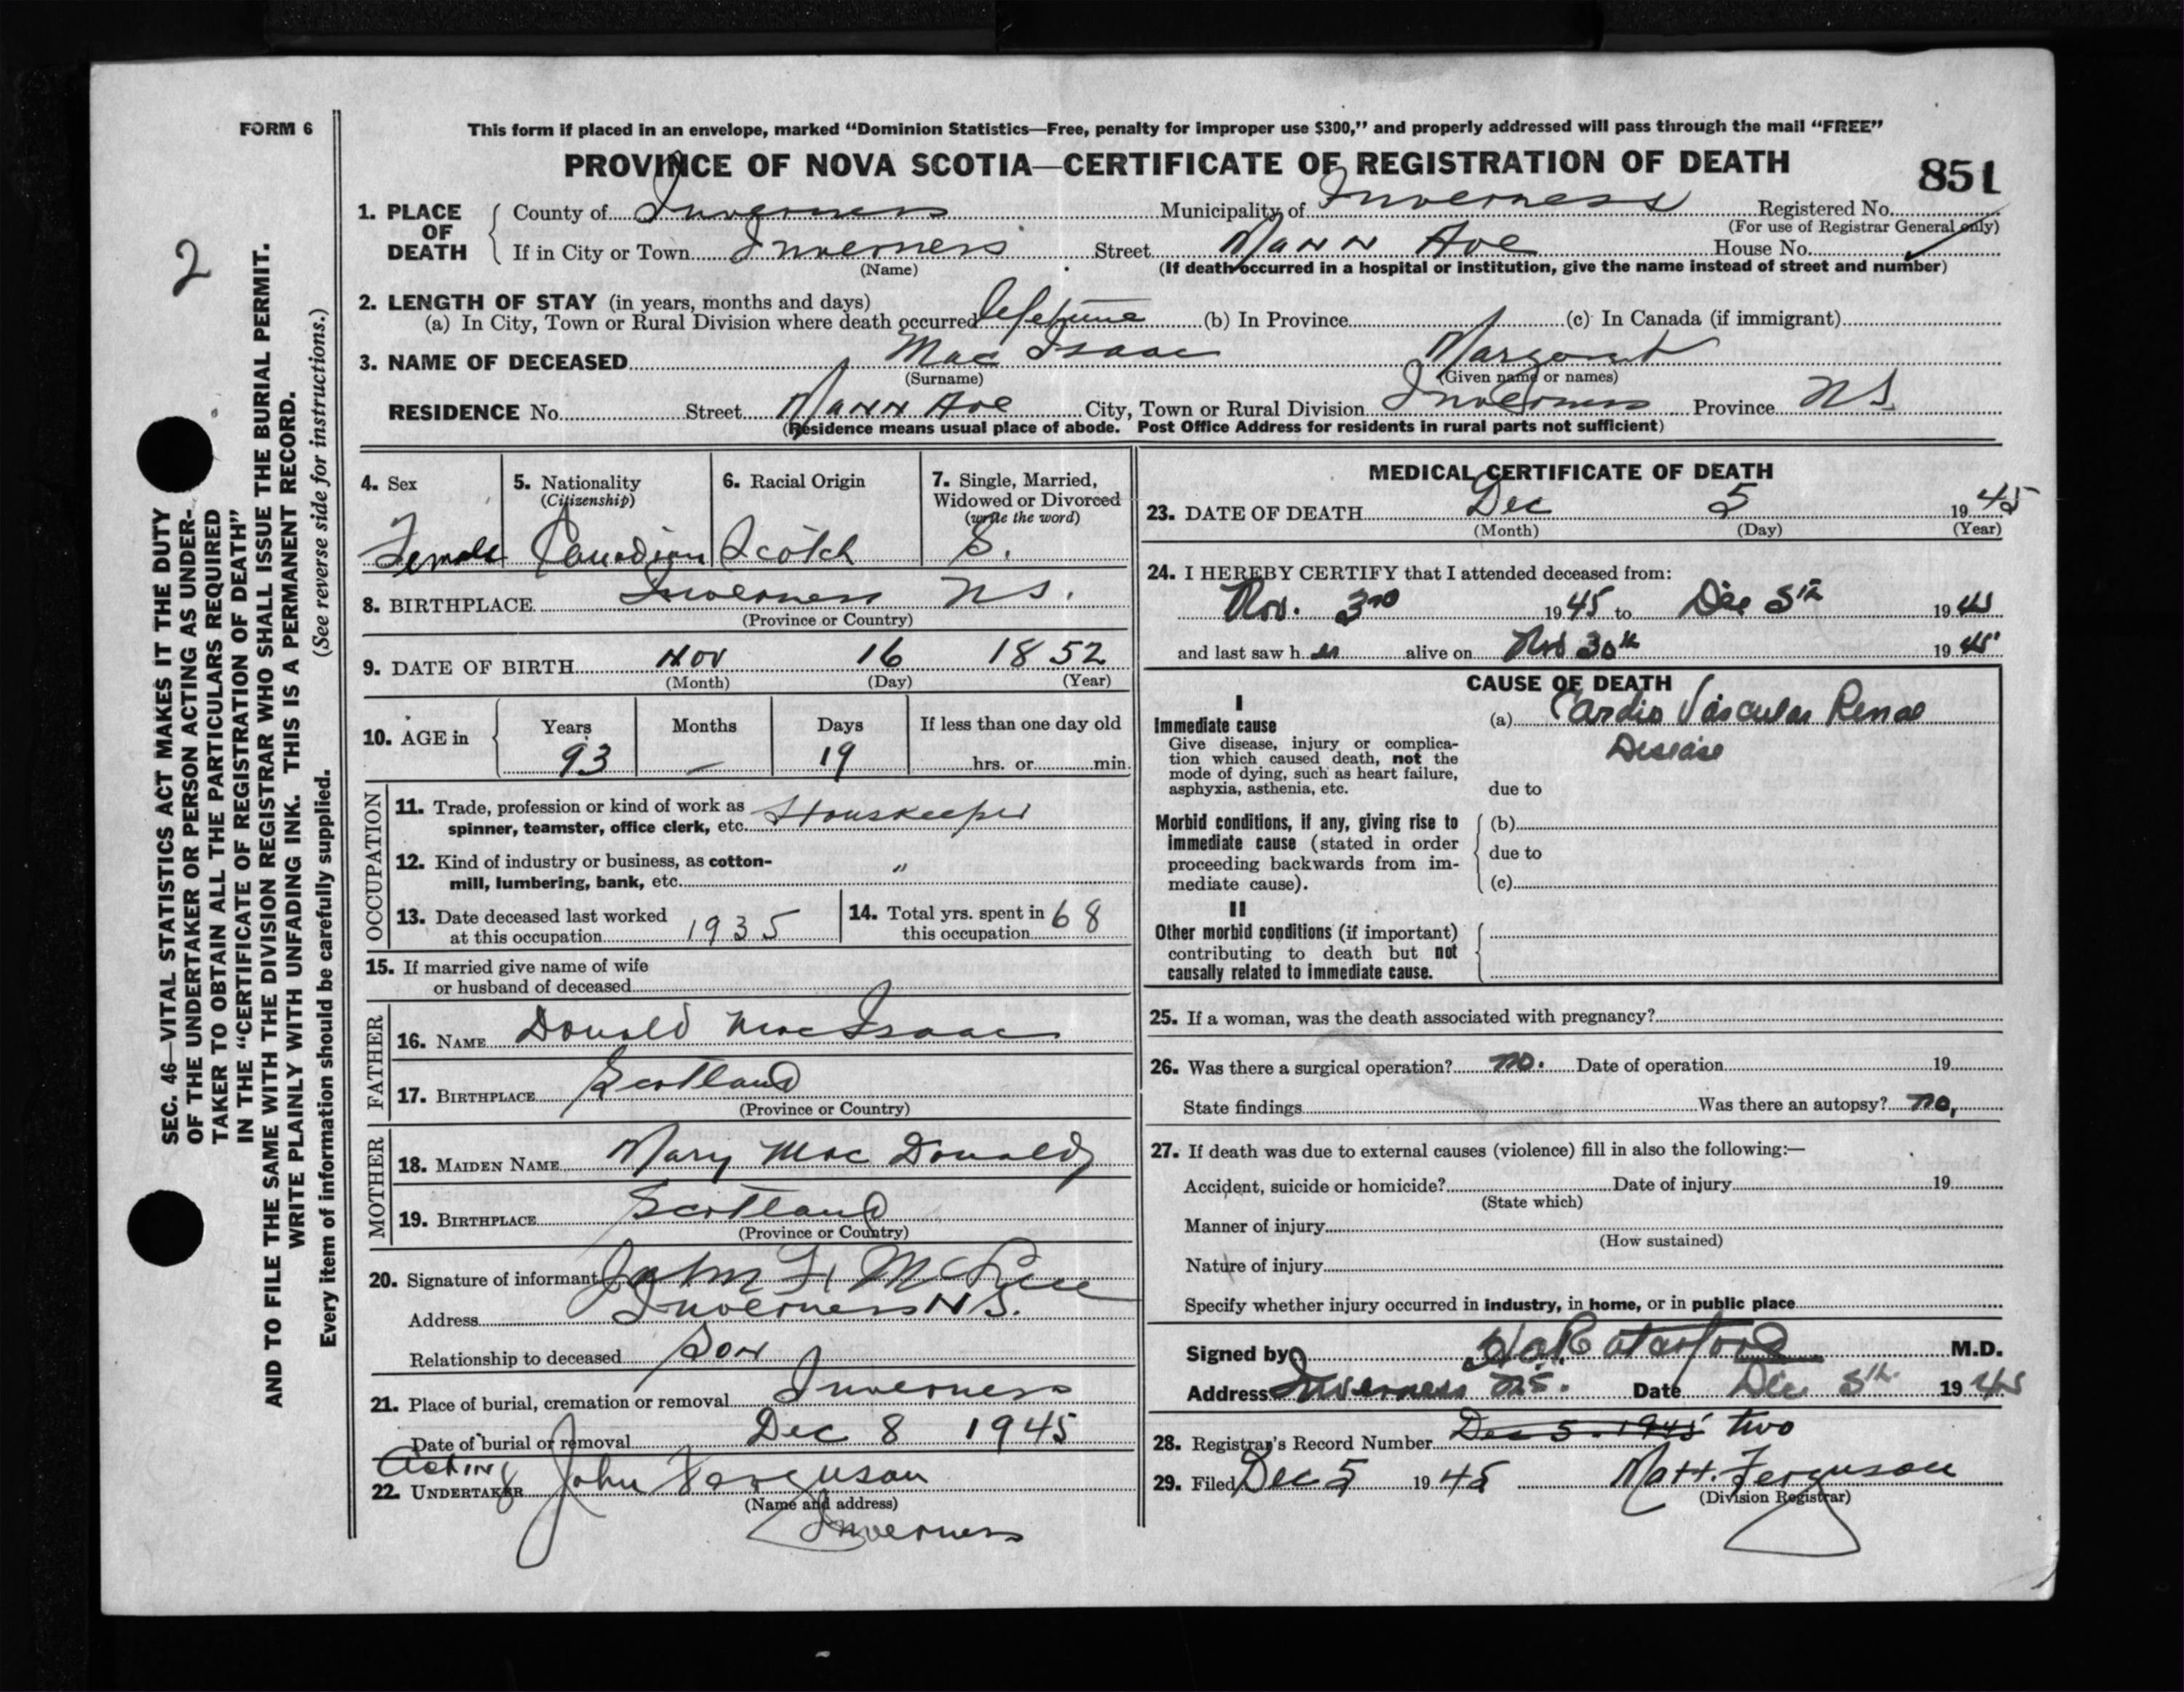 FORM 6
This form if placed in an envelope, marked “Dominion Statistics—Free, penalty for improper use $300,” and properly addressed will pass through the mail “FREE”
PROVINCE OF NOVA SCOTIA—CERTIFICATE OF REGISTRATION OF DEATH
851
2
SEC. 46—VITAL STATISTICS ACT MAKES IT THE DUTY
OF THE UNDERTAKER OR PERSON ACTING AS UNDER-
TAKER TO OBTAIN ALL THE PARTICULARS REQUIRED
IN THE “CERTIFICATE OF REGISTRATION OF DEATH”
AND TO FILE THE SAME WITH THE DIVISION REGISTRAR WHO SHALL ISSUE THE BURIAL PERMIT.
WRITE PLAINLY WITH UNFADING INK. THIS IS A PERMANENT RECORD.
Every item of information should be carefully supplied. (See reverse side for instructions.)
1. PLACE OF DEATH
County of Inverness Municipality of Inverness Registered No.
(For use of Registrar General only)
If in City or Town Inverness Street Mann Ave House No.
(Name) (If death occurred in a hospital or institution, give the name instead of street and number)
2. LENGTH OF STAY (in years, months and days)
(a) In City, Town or Rural Division where death occurred lifetime (b) In Province (c) In Canada (if immigrant)
3. NAME OF DECEASED Mac Isaac Margaret
(Surname) (Given name or names)
RESIDENCE No. Street Mann Ave City, Town or Rural Division Inverness Province NS
(Residence means usual place of abode. Post Office Address for residents in rural parts not sufficient)
4. Sex
Female
5. Nationality
(Citizenship)
Canadian
6. Racial Origin
Scotch
7. Single, Married,
Widowed or Divorced
(write the word)
S.
8. BIRTHPLACE Inverness NS.
(Province or Country)
9. DATE OF BIRTH Nov 16 1852
(Month) (Day) (Year)
10. AGE in
Years Months Days If less than one day old
93 — 19 hrs. or min.
OCCUPATION
11. Trade, profession or kind of work as
spinner, teamster, office clerk, etc. Houskeeper
12. Kind of industry or business, as cotton-
mill, lumbering, bank, etc. "
13. Date deceased last worked
at this occupation 1935
14. Total yrs. spent in
this occupation 68
15. If married give name of wife
or husband of deceased
FATHER
16. NAME Donald MacIsaac
17. BIRTHPLACE Scotland
(Province or Country)
MOTHER
18. MAIDEN NAME Mary Mac Donald
19. BIRTHPLACE Scotland
(Province or Country)
20. Signature of informant John
Address Inverness NS.
Relationship to deceased Son
21. Place of burial, cremation or removal Inverness
Date of burial or removal Dec 8 1945
Acting
22. UNDERTAKER John Ferguson
(Name and address)
Inverness
MEDICAL CERTIFICATE OF DEATH
23. DATE OF DEATH Dec 5 1945
(Month) (Day) (Year)
24. I HEREBY CERTIFY that I attended deceased from:
Nov. 3rd 1945 to Dec 5th 1945
and last saw h er alive on Nov 30th 1945
CAUSE OF DEATH
I
Immediate cause
Give disease, injury or complica-
tion which caused death, not the
mode of dying, such as heart failure,
asphyxia, asthenia, etc.
(a) Cardio Vascular Renal
Disease
due to
Morbid conditions, if any, giving rise to
immediate cause (stated in order
proceeding backwards from im-
mediate cause).
(b)
due to
(c)
II
Other morbid conditions (if important)
contributing to death but not
causally related to immediate cause.
25. If a woman, was the death associated with pregnancy?
26. Was there a surgical operation? no. Date of operation 19
State findings Was there an autopsy? no,
27. If death was due to external causes (violence) fill in also the following:—
Accident, suicide or homicide? Date of injury 19
(State which)
Manner of injury
(How sustained)
Nature of injury
Specify whether injury occurred in industry, in home, or in public place
Signed by M.D.
Address Inverness NS. Date Dec 5th 1945
28. Registrar's Record Number Dec 5 1945 two
29. Filed Dec 5 1945 Matt. Ferguson
(Division Registrar)